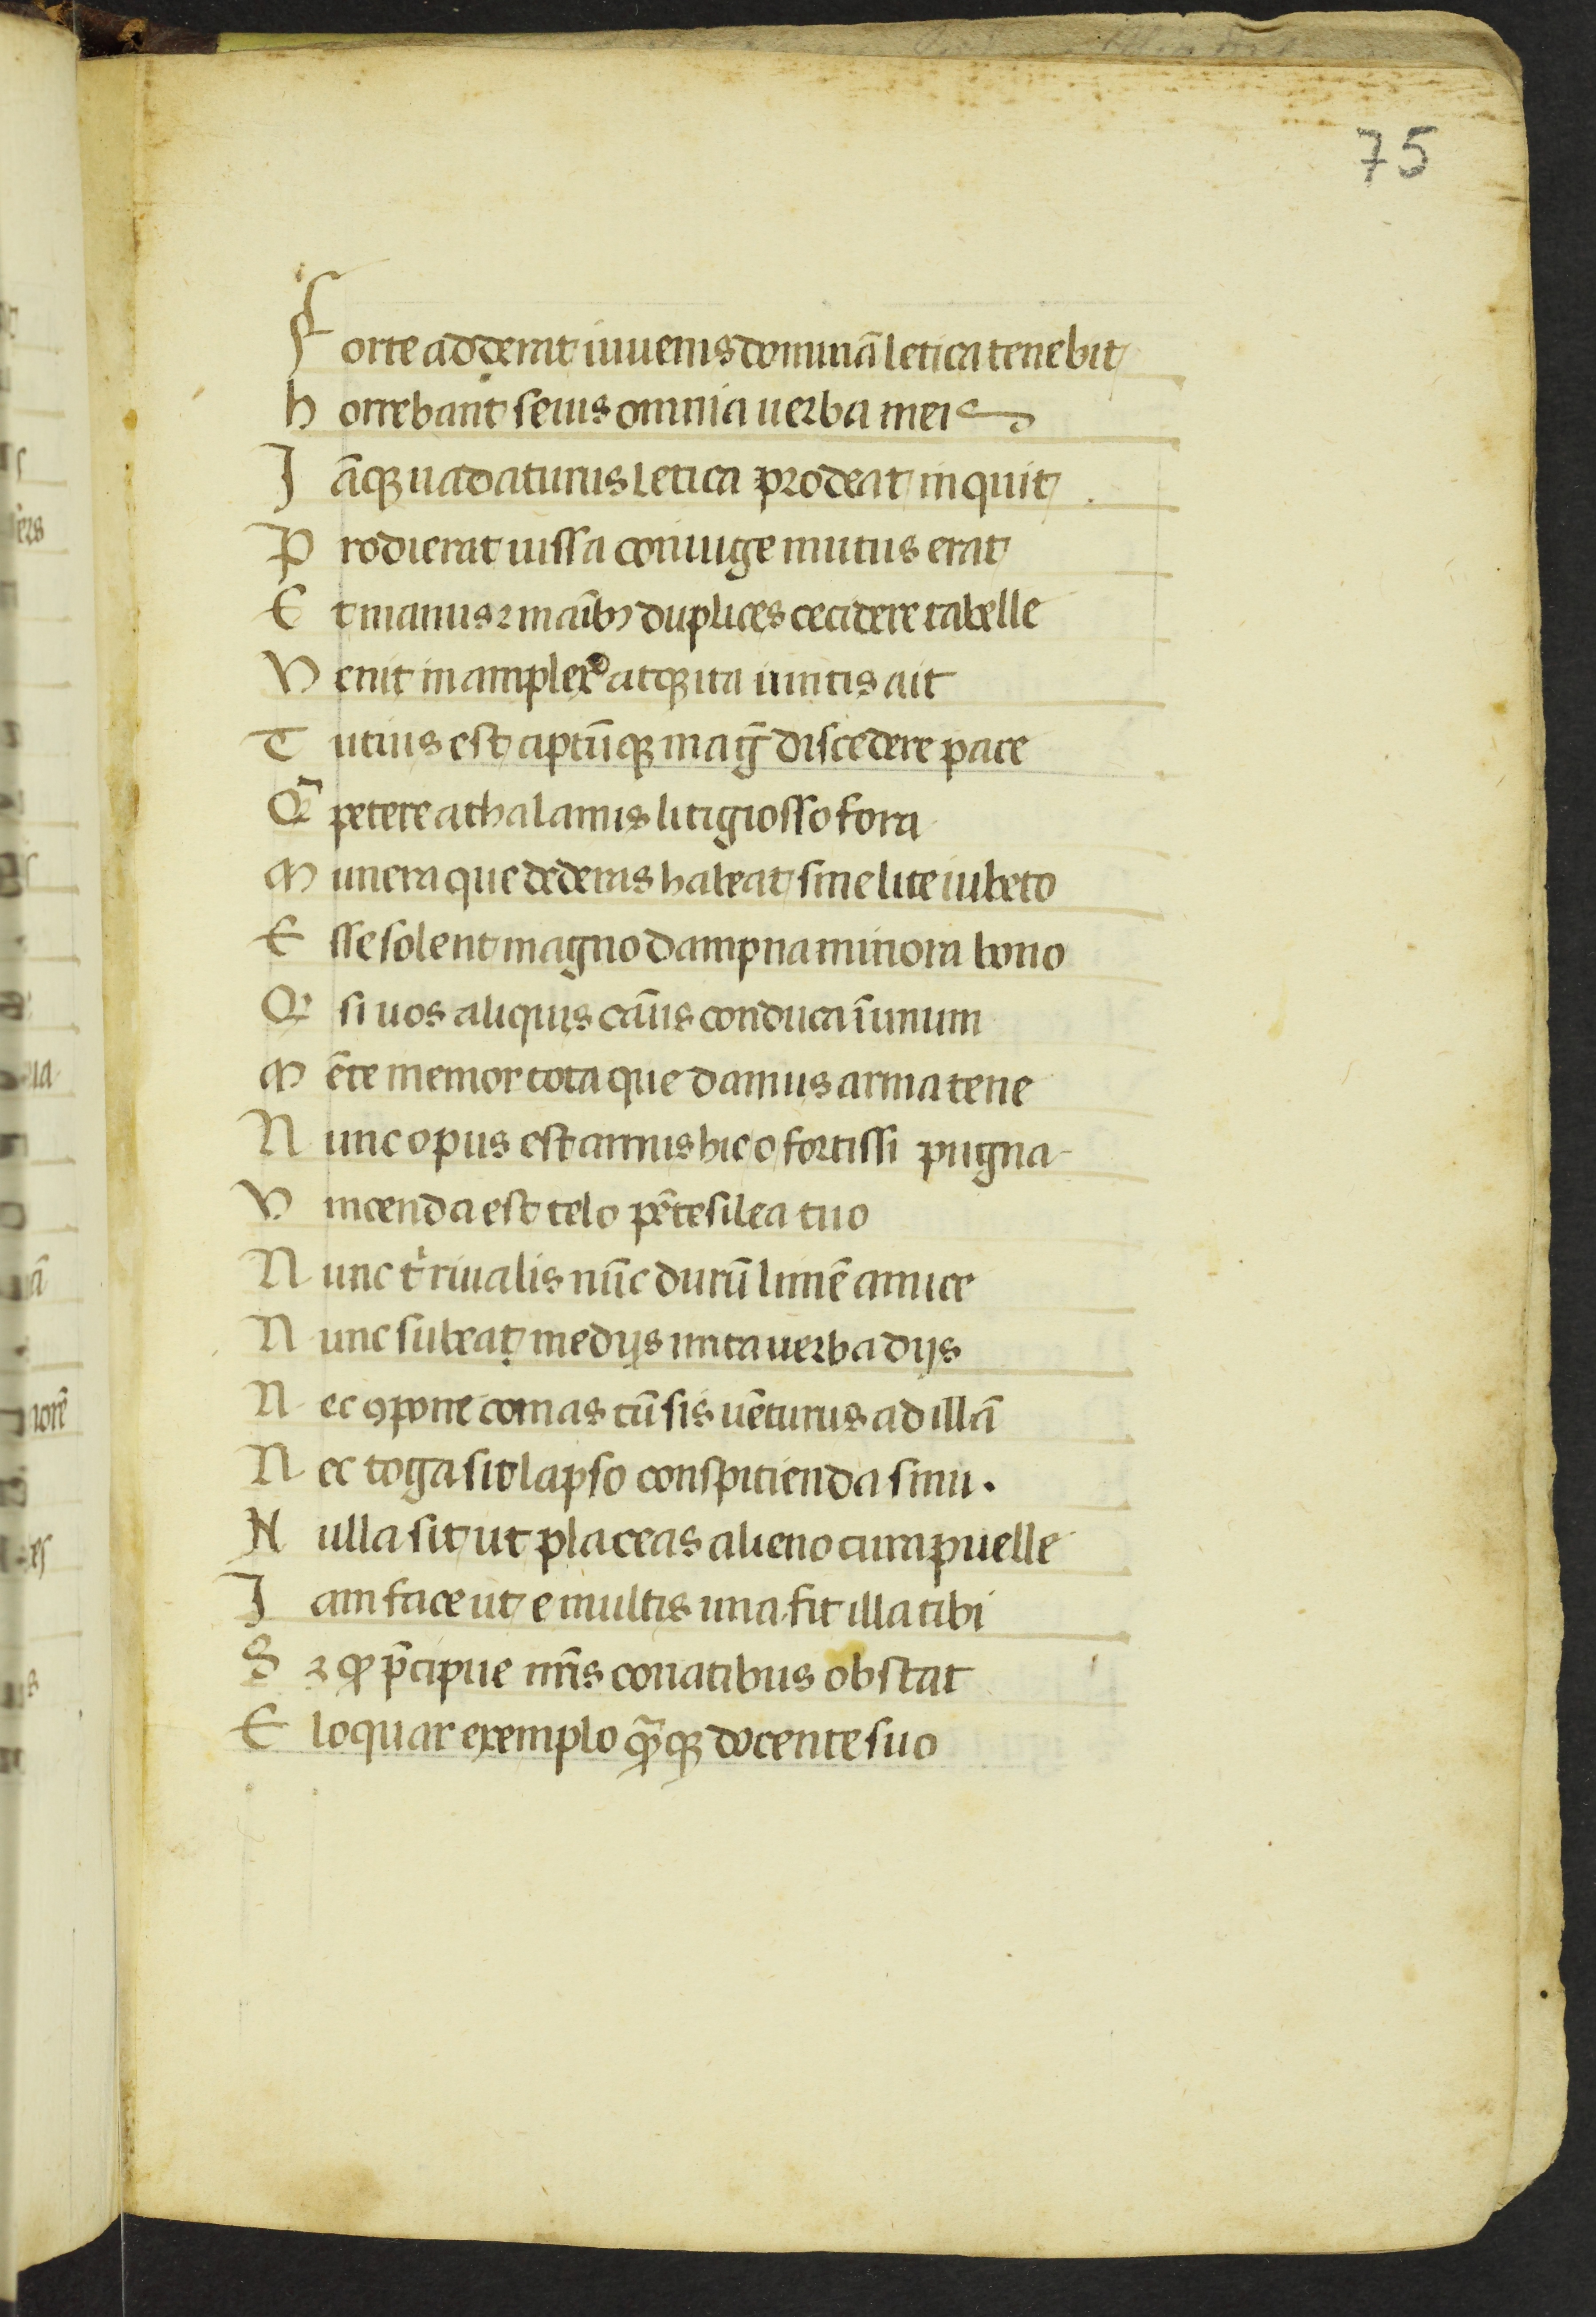 75
Forte adderat iuuenis dominā letica tenebit
horrebant seuis omnia uerba meis
Iāqꝫ uadaturus letica prodeat inquit
Prodierat uissa coniuge mutus erat
Et manus ⁊ maībꝫ duplices cecidere tabelle
Venit in amplexꝰ atqꝫ ita iuncis ait
Tutius est aptūqꝫ maḡ discedere pace
Q̄ petere a thalamis litigiosso fora
Munera que dederas habeat sine lite iubeto
Esse solent magno dampna minora bono
Qꝛ si uos aliquis cāus conduca ī unum
Mēte memor tota que damus arma tene
Nunc opus est armis hic o fortissi pugna
Vincenda est telo pētesilea tuo
Nunc t̉ riualis nūc durū limē amice
Nunc subeat medijs mita uerba dijs
Nec ꝯpone comas cū sis uēturus ad illā
Nec toga sit lapso conspitienda sinu.
Nulla sit ut placeas alieno cura puelle
Iam face ut e multis una fit illa tibi
Sꝫ ꝙ p̄cipue nr̄is conatibus obstat
Eloquar exemplo qȝ̄qꝫ docente suo